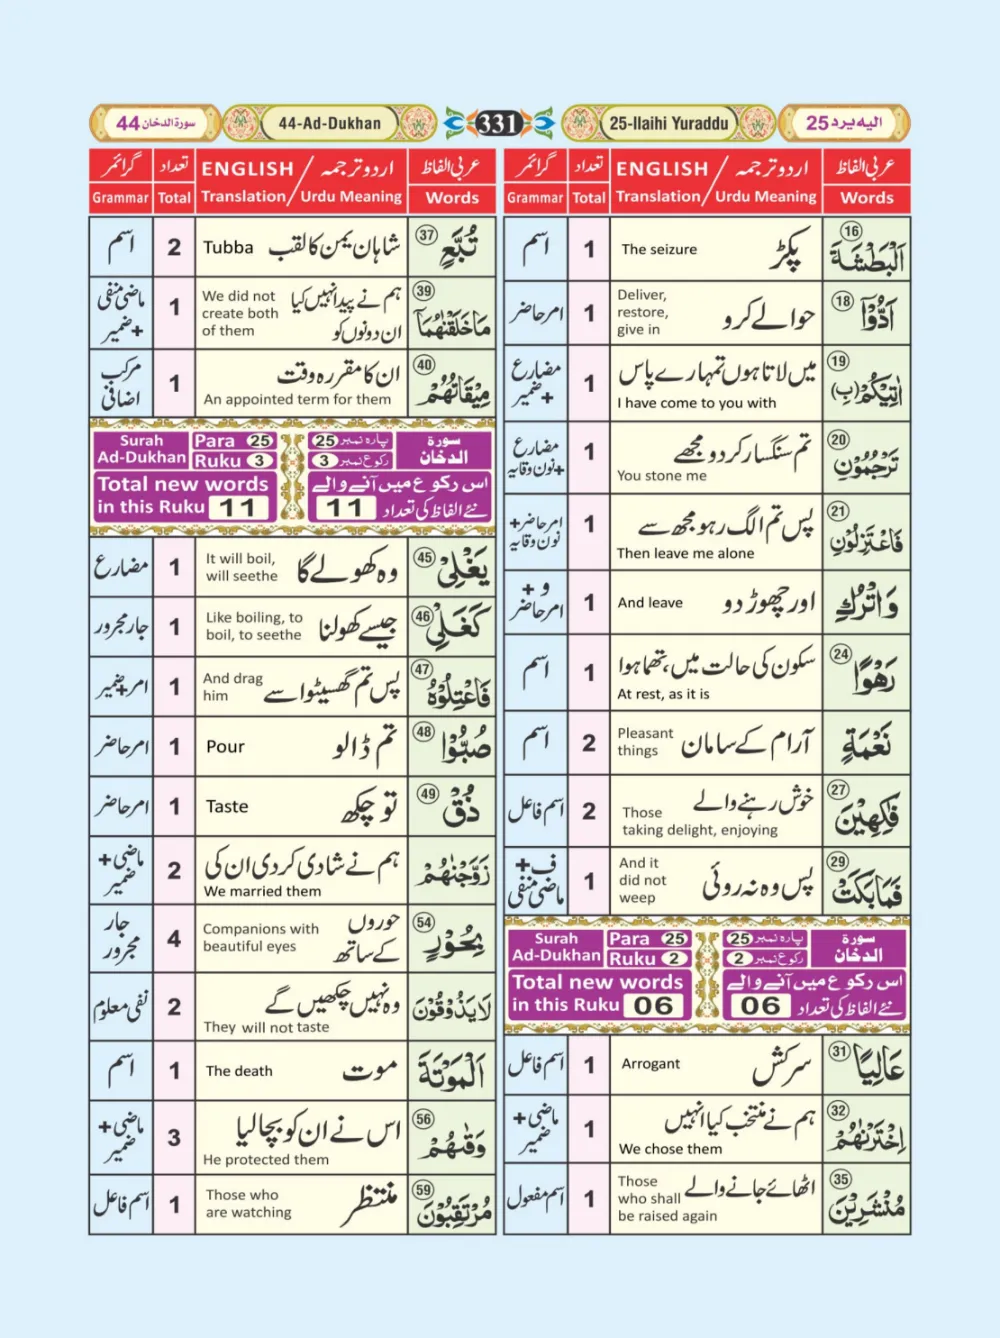 سورۃ الدخان 44
44-Ad-Dukhan
331
25-Ilaihi Yuraddu
الیہ یرد 25
عربی الفاظ
اردو ترجمہ / ENGLISH
تعداد
گرائمر
Words
Translation / Urdu Meaning
Total
Grammar
16 اَلْبَطْشَةَ
پکڑ
The seizure
1
اسم
18 اَدُّوْۤا
حوالے کرو
Deliver,
restore,
give in
1
امر حاضر
19 اٰتِيْكُمْ (بِ)
میں لاتا ہوں تمہارے پاس
I have come to you with
1
مضارع
+ ضمیر
20 تَرْجُمُوْنِ
تم سنگسار کر دو مجھے
You stone me
1
مضارع
+نون وقایہ
21 فَاعْتَزِلُوْنِ
پس تم الگ رہو مجھ سے
Then leave me alone
1
امر حاضر+
نون وقایہ
وَاتْرُكِ
اور چھوڑ دو
And leave
1
و +
امر حاضر
24 رَهْوًا
سکون کی حالت میں، تھما ہوا
At rest, as it is
1
اسم
نَعْمَةٍ
آرام کے سامان
Pleasant
things
2
اسم
27 فٰكِهِيْنَ
خوش رہنے والے
Those
taking delight, enjoying
2
اسم فاعل
29 فَمَابَكَتْ
پس وہ نہ روئی
And it
did not
weep
1
ف+
ماضی منفی
Surah
Ad-Dukhan
Para 25
Ruku 2
پارہ نمبر 25
رکوع نمبر 2
سورۃ
الدخان
Total new words
in this Ruku 06
اس رکوع میں آنے والے
نئے الفاظ کی تعداد 06
31 عَالِيًا
سرکش
Arrogant
1
اسم فاعل
32 اِخْتَرْنٰهُمْ
ہم نے منتخب کیا انہیں
We chose them
1
ماضی +
ضمیر
35 مُنْشَرِيْنَ
اٹھائے جانے والے
Those
who shall
be raised again
1
اسم مفعول
عربی الفاظ
اردو ترجمہ / ENGLISH
تعداد
گرائمر
Words
Translation / Urdu Meaning
Total
Grammar
37 تُبَّعٍ
شاہان یمن کا لقب
Tubba
2
اسم
39 مَاخَلَقْنٰهُمَاۤ
ہم نے پیدا نہیں کیا
ان دونوں کو
We did not
create both
of them
1
ماضی منفی
+ضمیر
40 مِيْقَاتُهُمْ
ان کا مقررہ وقت
An appointed term for them
1
مرکب
اضافی
Surah
Ad-Dukhan
Para 25
Ruku 3
پارہ نمبر 25
رکوع نمبر 3
سورۃ
الدخان
Total new words
in this Ruku 11
اس رکوع میں آنے والے
نئے الفاظ کی تعداد 11
45 يَغْلِيْ
وہ کھولے گا
It will boil,
will seethe
1
مضارع
46 كَغَلْيِ
جیسے کھولنا
Like boiling, to
boil, to seethe
1
جار مجرور
47 فَاعْتِلُوْهُ
پس تم گھسیٹو اسے
And drag
him
1
امر+ضمیر
48 صُبُّوْا
تم ڈالو
Pour
1
امر حاضر
49 ذُقْ
تو چکھ
Taste
1
امر حاضر
زَوَّجْنٰهُمْ
ہم نے شادی کر دی ان کی
We married them
2
ماضی +
ضمیر
54 بِحُوْرٍ
حوروں
کے ساتھ
Companions with
beautiful eyes
4
جار
مجرور
لَا يَذُوْقُوْنَ
وہ نہیں چکھیں گے
They will not taste
2
نفی معلوم
اَلْمَوْتَةَ
موت
The death
1
اسم
56 وَقٰىهُمْ
اس نے ان کو بچا لیا
He protected them
3
ماضی +
ضمیر
59 مُرْتَقِبُوْنَ
منتظر
Those who
are watching
1
اسم فاعل